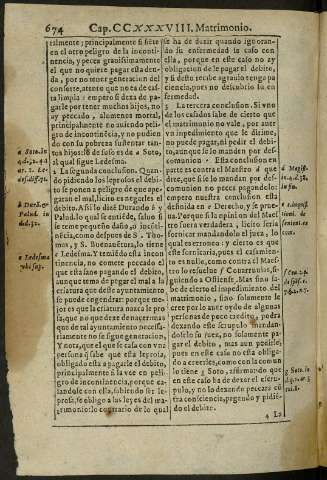 674 Cap. CCXXXVIII. Matrimonio.
talmente; principalmente si siete
en el otro peligro de la inconti-
nencia, y pecca gravissimamente
el que no quiere pagar esta deu-
da, por no tener generacion del
consorte, atento que no ea de ca-
sta limpia: empero si dexa de pa-
garle por tener muchos hijos, no
ay peccado, alomenos mortal,
principalmente no auiendo peli-
gro de incontinencia, y no pudien
do con su pobreza sustentar tan-
tos hijos: assi despues de a Soto,
al qual sigue Ledesma.
2 La segunda conclusion. Quan-
do pidiendo los leprosos el debi-
to se ponen a peligro de que ape-
garan el mal, licito es negarles el
debito. Assi lo dize Durando b y
Palud. lo qual se entiēde, saluo si
se teme pequeño daño, o inconti-
nēcia, como despues de S. Tho-
mas, y S. Buenauētura, lo tiene
c Ledesma. Y temido esta incon
tinencia, no comete peccado el
que esta sano pagando el debito,
aunque tema de pagar el mal a la
criatura que deste ayuntamiento
se puede engendrar: porque me-
jor es que la criatura nazca lepro
sa, que no que dexe de nacer: mas
que de tal ayuntamiento necessa-
riamente no se sigue generacion,
Y nota, que el que se casa con vna
persona q̃ sabe que esta leprosa,
obligado esta a pagarle el debito,
principalmente si la vee en peli-
gro de incontinencia, porque ca-
sandose con ella, sabiendo ser le-
prosa, se obligo a las leyes del ma-
trimonio: lo contrario de lo qual
a Soto. in
b Durā. &
Palud. in
c Ledesma
vbi sup.
se ha de dezir quando ignoran-
do su enfermedad la caso con
ella, porque en este caso no ay
obligacion de le pagar el debito,
y si desto recibe agrauio tenga pa
ciencia, pues no descubrio su en
fermedad.
3 La tercera conclusion. Si vno
de los casados sabe de cierto que
el matrimonio no vale, por auer
vn impedimento que le dirime,
no puede pagar, ni pedir el debi-
to, aunque se lo manden por des-
comunion. Esta conclusion en
parte es contra el Maestro d que
dize, que si se lo mandan por des
comunion no pecca pagandolo:
empero nuestra conclusion esta
definida en e Derecho, y se prue-
ua. Porque si la opinion del Mae
stro fuera verdadera, licito seria
fornicar mandandolo el juez, lo
qual es erroneo: y cierto es que
este fornicaria, pues el casamien
to es nulle, como contra el Maes
tro lo resuelue f Couarruuias, si-
guiendo a Ostiense. Mas si no sa-
be de cierto el impedimento del
matrimonio, sino solamente le
cree por lo auer oydo de algunas
personas de poco credito, podra
dexando este scrupulo mandan-
doselo su juez, no solamente pa-
gar el debito, mas aun pedirle:
pues en este caso no esta obliga-
do a creerles, como con la comun
lo tiene g Soto, affirmando que
en este caso ha de dexar el escru-
pulo, y no lo dexando peccara cō
tra consciencia, pagando y pidiē-
do el debito.
in fin.
g Soto. in
4 La